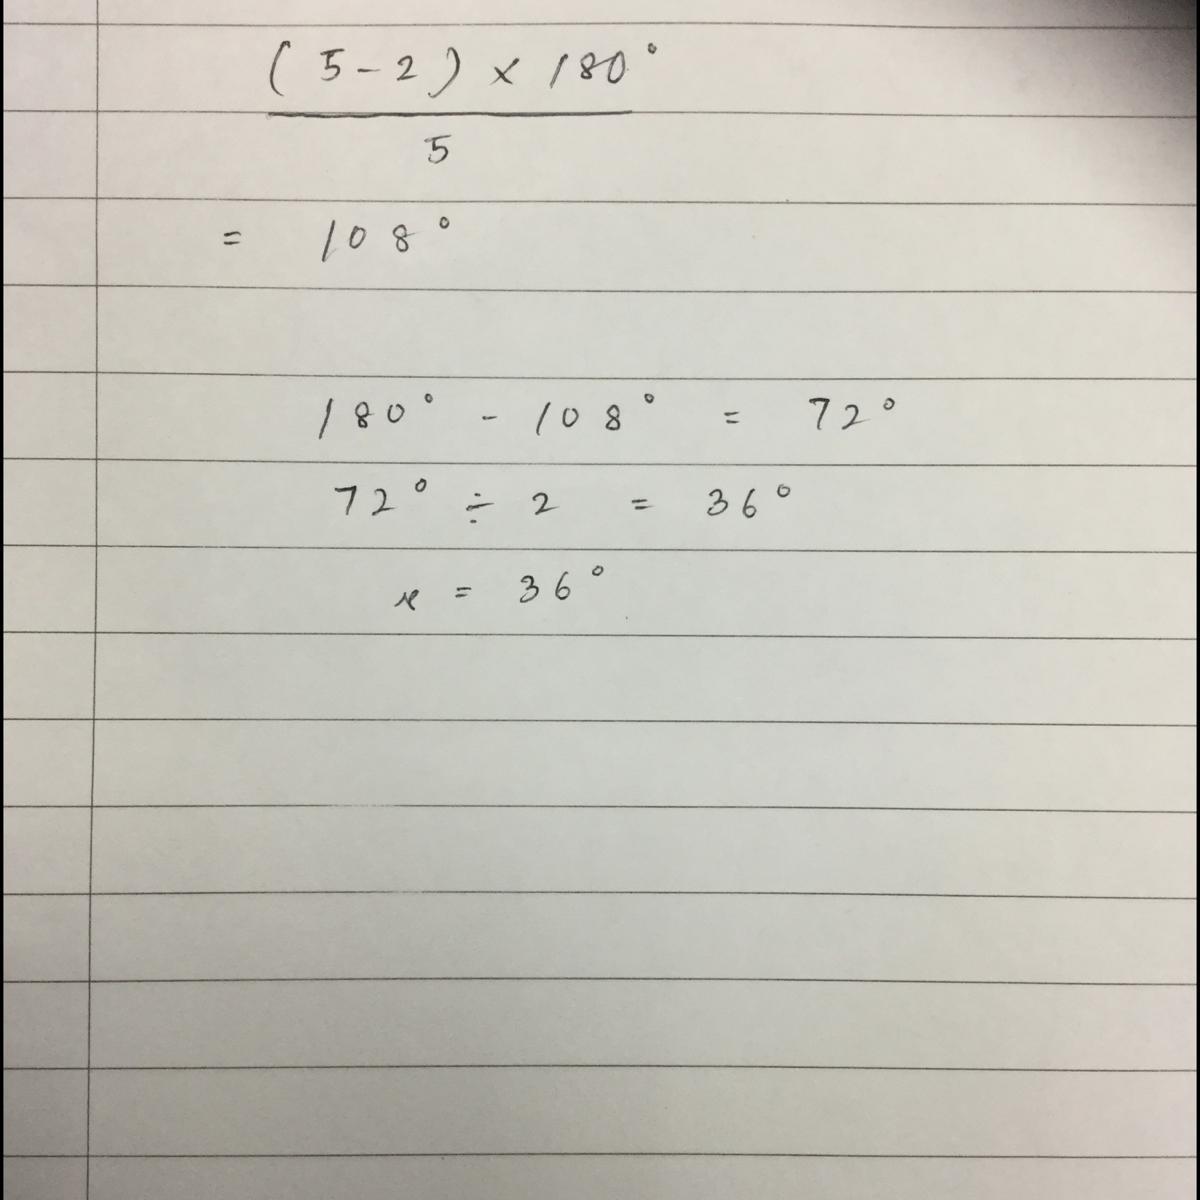 ( 5 - 2 ) × 180°
5
= 108°
180° - 108° = 72°
72° ÷ 2 = 36°
x = 36°